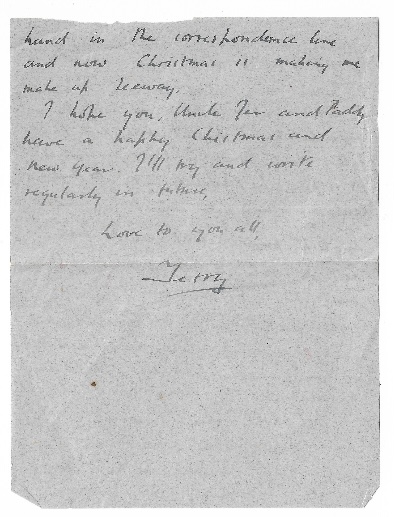 hand in the correspondence line
and now Christmas is making me
make up leeway.
I hope you, Uncle Jer and Paddy
have a happy Christmas and
new year. I'll try and write
regularly in future,
Love to you all,
Terry